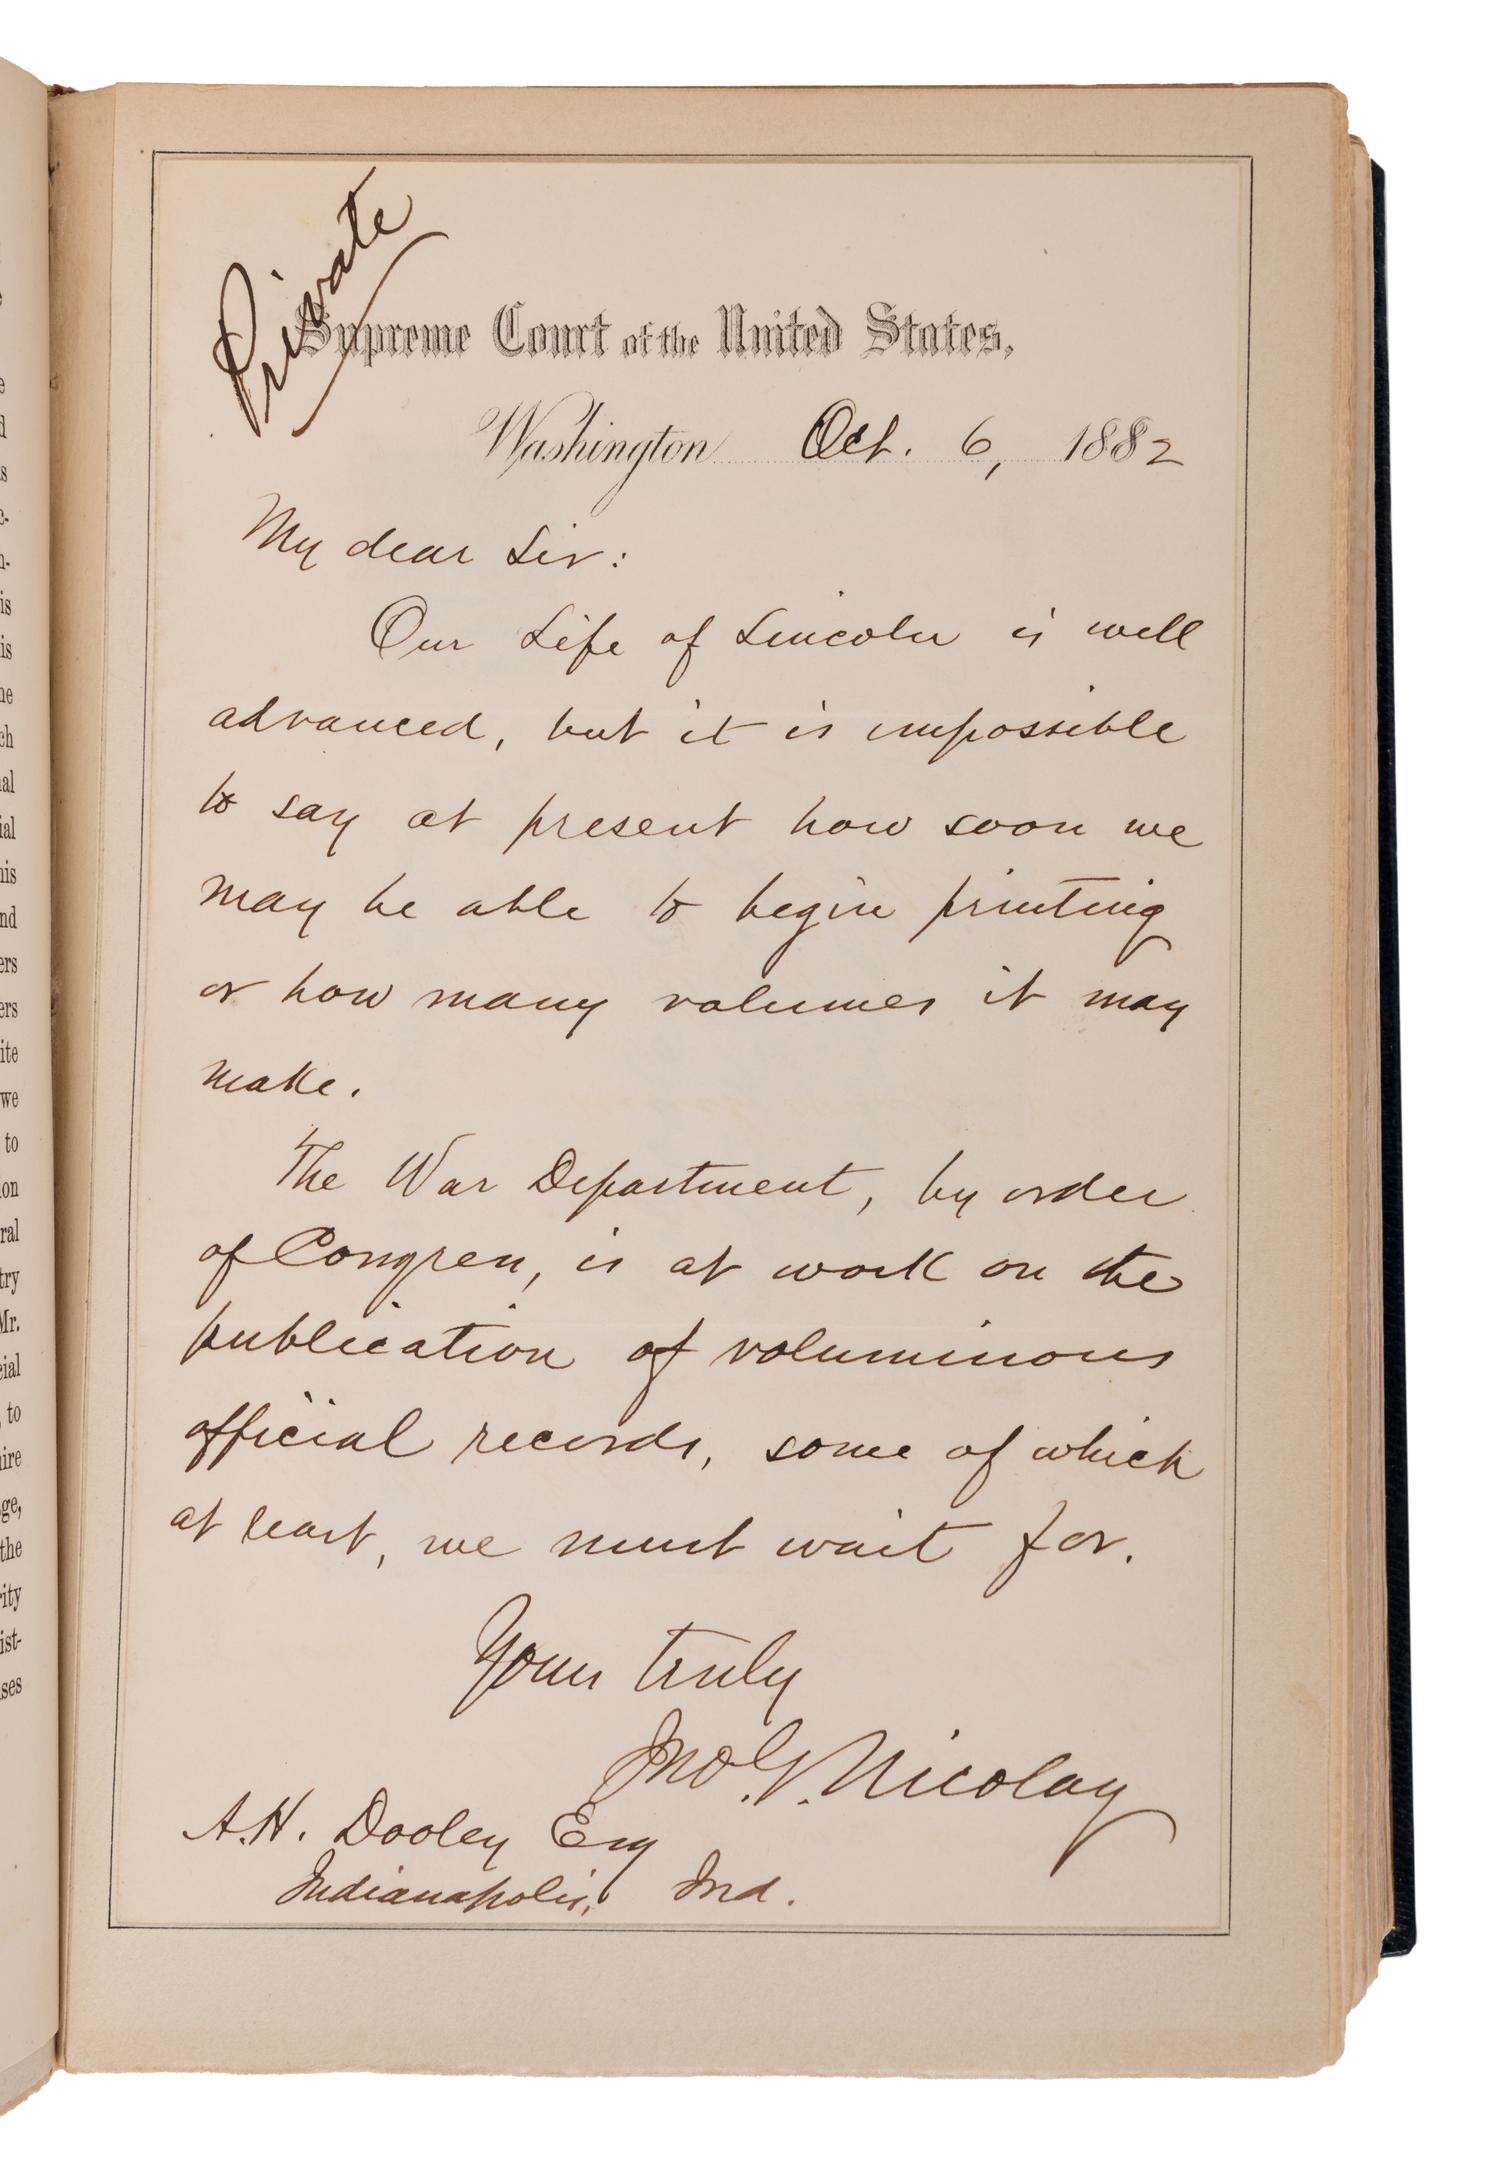 Private
Supreme Court of the United States,
Washington Oct. 6, 1882
My dear Sir:
Our Life of Lincoln is well
advanced, but it is impossible
to say at present how soon we
may be able to begin printing
or how many volumes it may
make.
The War Department, by order
of Congress, is at work on the
publication of voluminous
official records, some of which
at least, we must wait for.
Yours truly
Jno. G. Nicolay
A. H. Dooley Esq
Indianapolis, Ind.